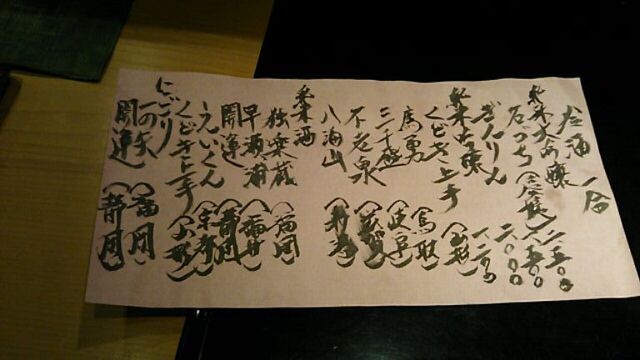 お酒 一合
純米大吟醸 二五〇〇
一八五〇
ぎんりん 二〇〇〇
純米吟醸 一二〇〇
くどき上手 (山形)
鷹勇 (鳥取)
三千盛 (岐阜)
不老泉 (滋賀)
八海山 (新潟)
純米酒
独楽蔵 (福岡)
早瀬浦 (福井)
開運 (静岡)
くどき上手 (山形)
にごり
一の矢 (福岡)
開運 (静岡)